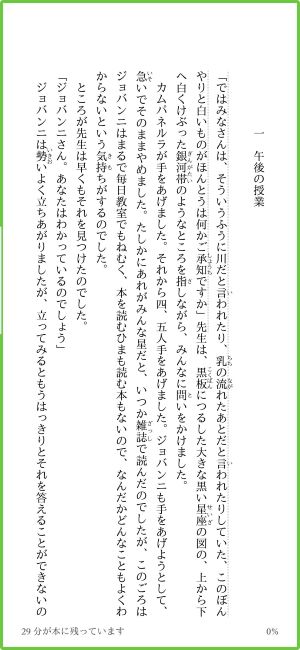 一　午後の授業
「ではみなさんは、そういうふうに川だと言われたり、乳の流れたあとだと言われたりしていた、このぼん
やりと白いものがほんとうは何かご承知ですか」先生は、黒板につるした大きな黒い星座の図の、上から下
へ白くけぶった銀河帯のようなところを指しながら、みんなに問いをかけました。
カムパネルラが手をあげました。それから四、五人手をあげました。ジョバンニも手をあげようとして、
急いでそのままやめました。たしかにあれがみんな星だと、いつか雑誌で読んだのでしたが、このごろは
ジョバンニはまるで毎日教室でもねむく、本を読むひまも読む本もないので、なんだかどんなこともよくわ
からないという気持ちがするのでした。
ところが先生は早くもそれを見つけたのでした。
「ジョバンニさん。あなたはわかっているのでしょう」
ジョバンニは勢いよく立ちあがりましたが、立ってみるともうはっきりとそれを答えることができないの
29 分が本に残っています
0%